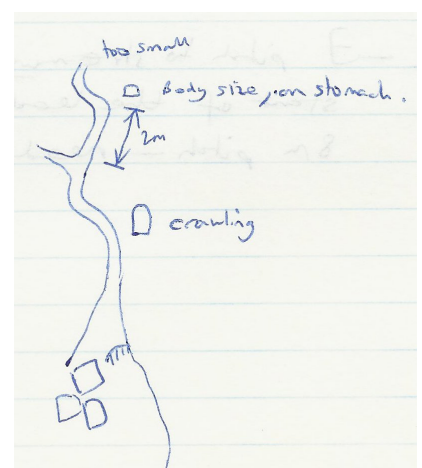 too small
Body size, on stomach.
2m
crawling